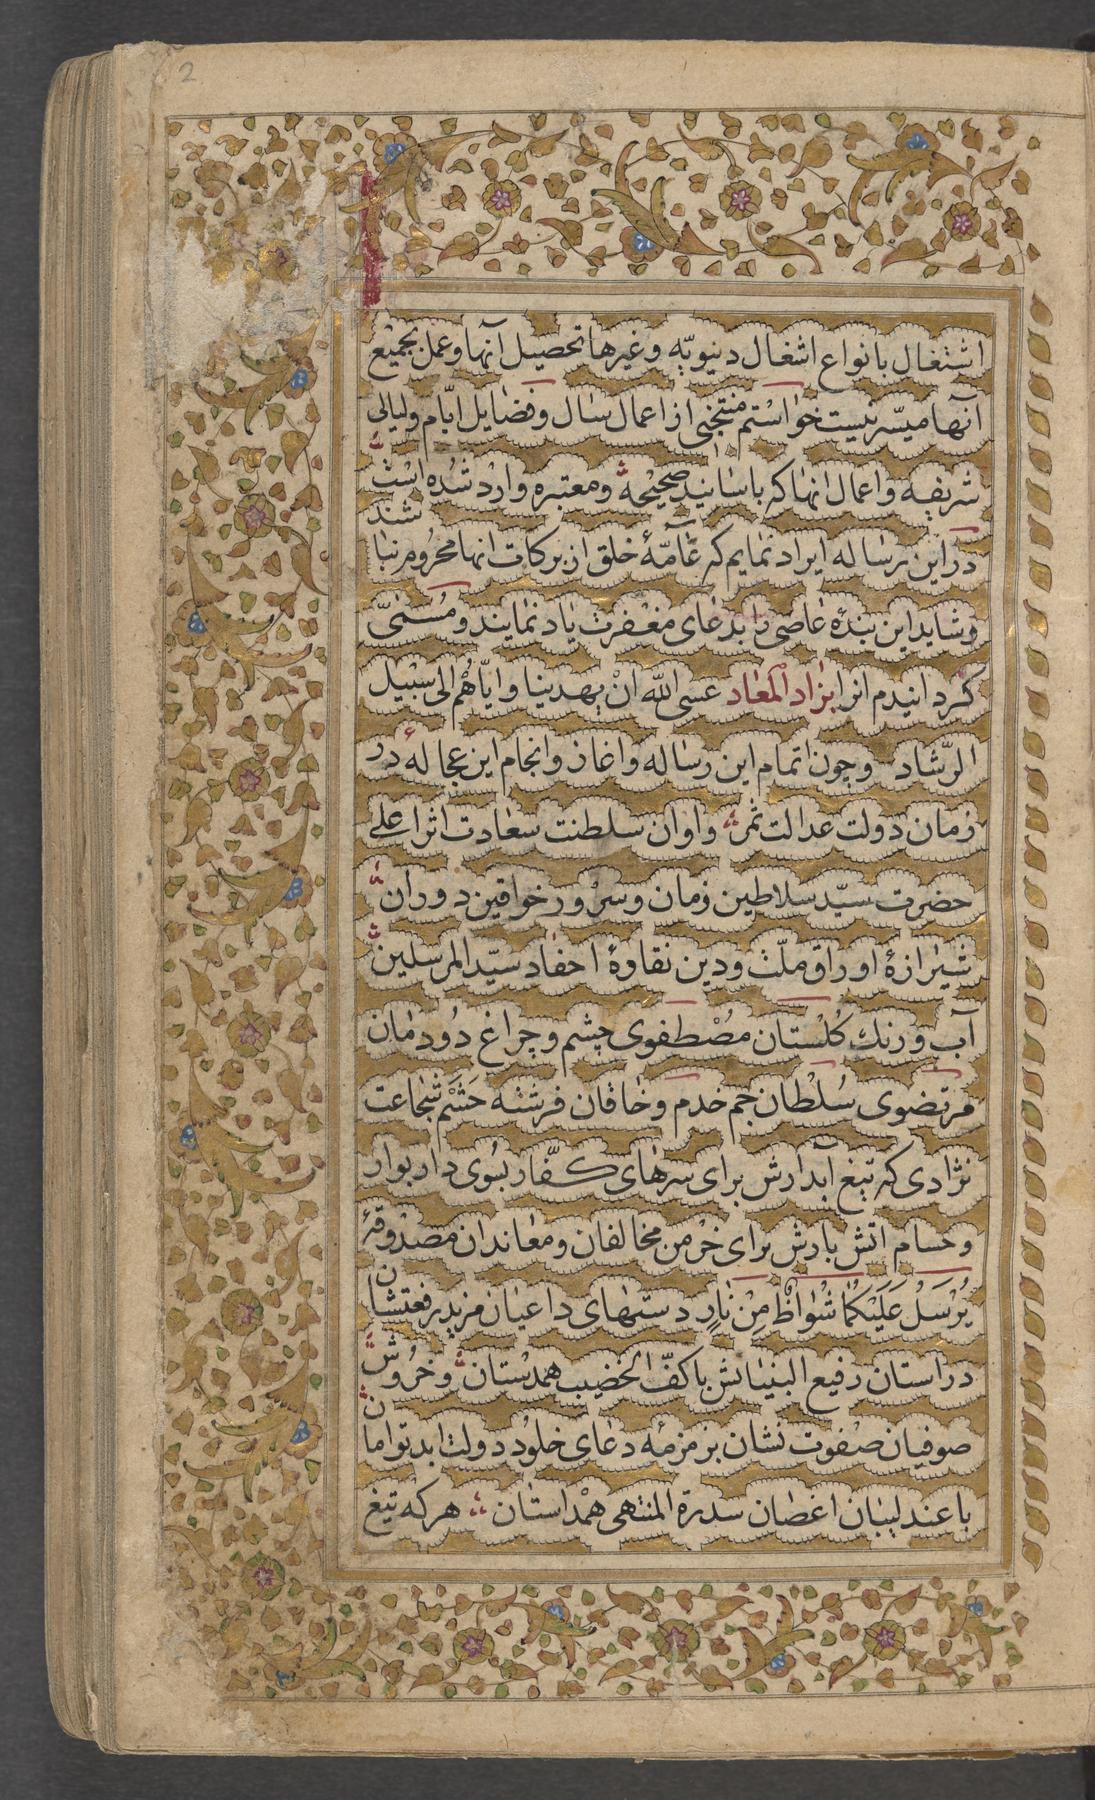 2
اشتغال بانواع اشغال دنیویّه وغیرها تحصیل آنها وعمل بجمیع
آنها میسّر نیست خواستم منتخبی از اعمال سال وفضایل ایّام ولیالی
شریفه واعمال انها که باسانید صحیحه ومعتبره وارد شده است
در این رساله ایراد نمایم که عامّهٔ خلق از برکات انها محروم نبا
شند
وشاید این بندهٔ عاصی را بدعای مغفرت یاد نمایند ومسمّی
کردانیدم انرا بزاد المعاد عسی الله انْ یهدینا وایّاهُم الی سبیل
الرّشاد وچون اتمام این رساله واغاز وانجام این عجاله در
زمان دولت عدالت ثمر واوان سلطنت سعادت اثر اعلی
حضرت سیّد سلاطین زمان وسرور خواقین دوران
شیرازهٔ اوراق ملّت ودین نقاوهٔ احفاد سیّد المرسلین
آب ورنك کُلستان مصْطفوی چشم وچراغ دُودمان
مرتضوی سُلْطان جم خدم وخاقان فرشته حَشَم شجاعت
نژادی که تیغ آبدارش برای سرهای کفّار بسوی دار بوار
وحسام اتش بارش برای خرْمن مخالفان ومعاندان مصْدوقهٔ
یُرْسَلُ عَلَیْکُمٰا شُوٰاظٌ مِنْ نٰارٍ دستهای داعیان مزید رفعتشان
در استان رفیع البنیانش با کفّ الخضیب همدستان وخروش
صوفیان صفوت نشان بزمزمه دعای خلود دولت ابد تواما
ن
با عندلیبان اغصان سدرة المنتهی همْداستان هر که تیغ